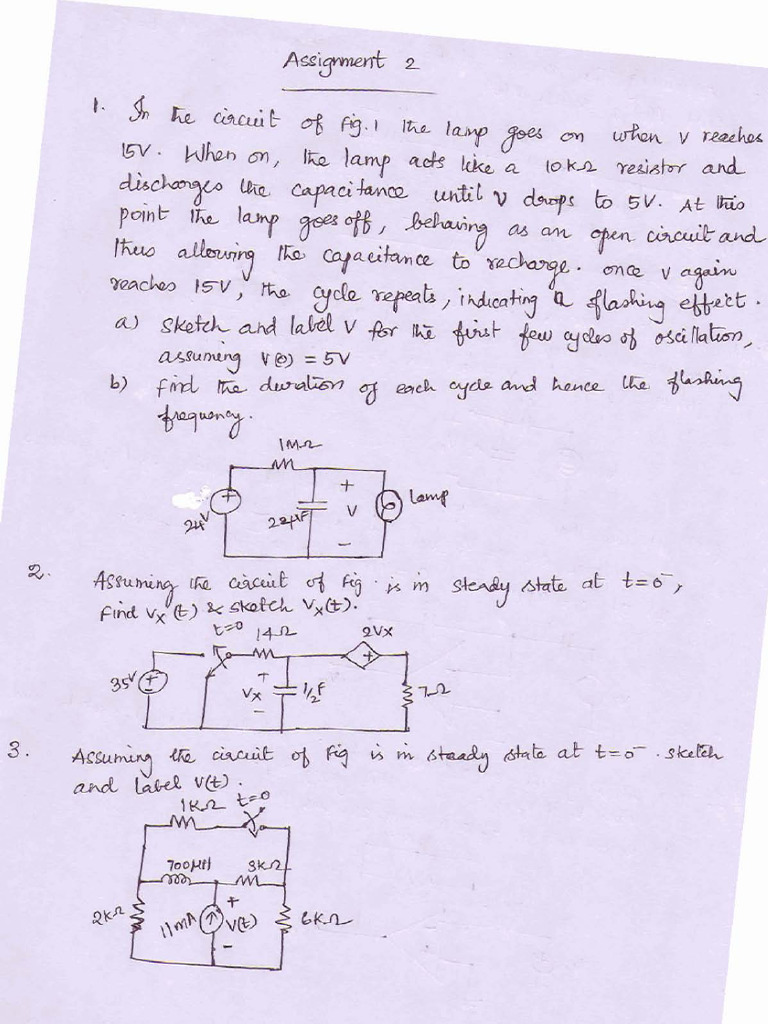 Assignment 2
1. In the circuit of Fig.1 the lamp goes on when v reaches
15V. When on, the lamp acts like a 10kΩ resistor and
discharges the capacitance until v drops to 5V. At this
point the lamp goes off, behaving as an open circuit and
thus allowing the capacitance to recharge. once v again
reaches 15V, the cycle repeats, indicating a flashing effect.
a) Sketch and label V for the first few cycles of oscillation,
assuming V(0) = 5V
b) find the duration of each cycle and hence the flashing
frequency.
1MΩ
+
+
Lamp
24V
22μF
V
-
2. Assuming the circuit of Fig. is in steady state at t=0⁻,
find Vx(t) & sketch Vx(t).
t=0 14Ω 2Vx
35V + - + Vx - 1/2F + 7Ω
3. Assuming the circuit of Fig is in steady state at t=0⁻. sketch
and label V(t).
1KΩ t=0
700μH 3KΩ
2KΩ 11mA + V(t) - 6KΩ